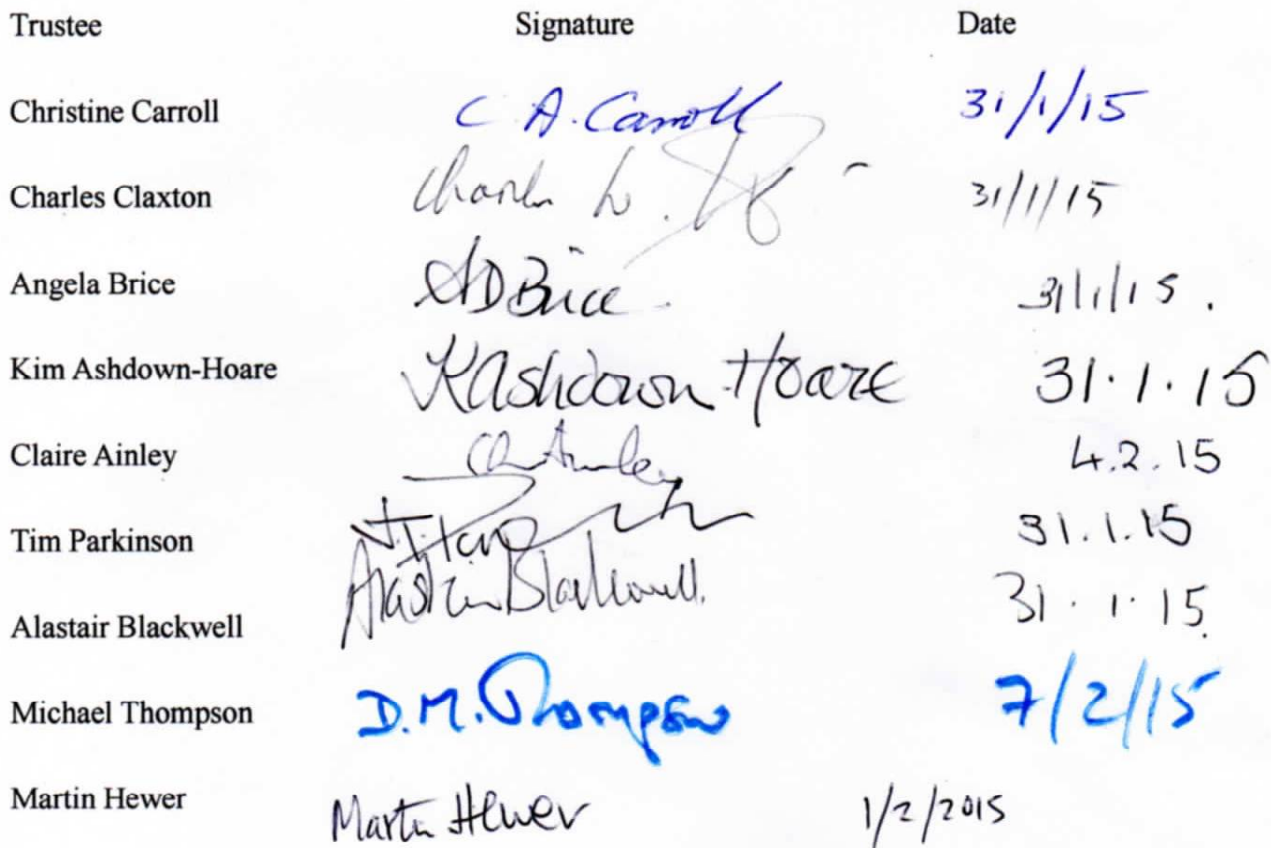 Trustee Signature Date
Christine Carroll C. A. Carroll 31/1/15
Charles Claxton Charles W. 31/1/15
Angela Brice ADBrice 31/1/15.
Kim Ashdown-Hoare KAshdown-Hoare 31.1.15
Claire Ainley 4.2.15
Tim Parkinson 31.1.15
Alastair Blackwell Alastair Blackwell. 31.1.15.
Michael Thompson D.M. Thompson 7/2/15
Martin Hewer Martin Hewer 1/2/2015